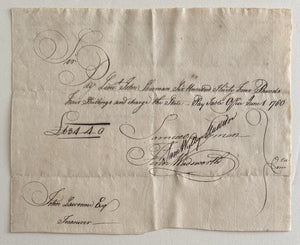 Sir
Pay Lieut John Sherman Six Hundred Thirty four Pounds
four Shillings and charge the State - Pay Table Office June 1 1780
£634.4.0
Samuel
Wadsworth
John Lawrence Esqr
Treasurer